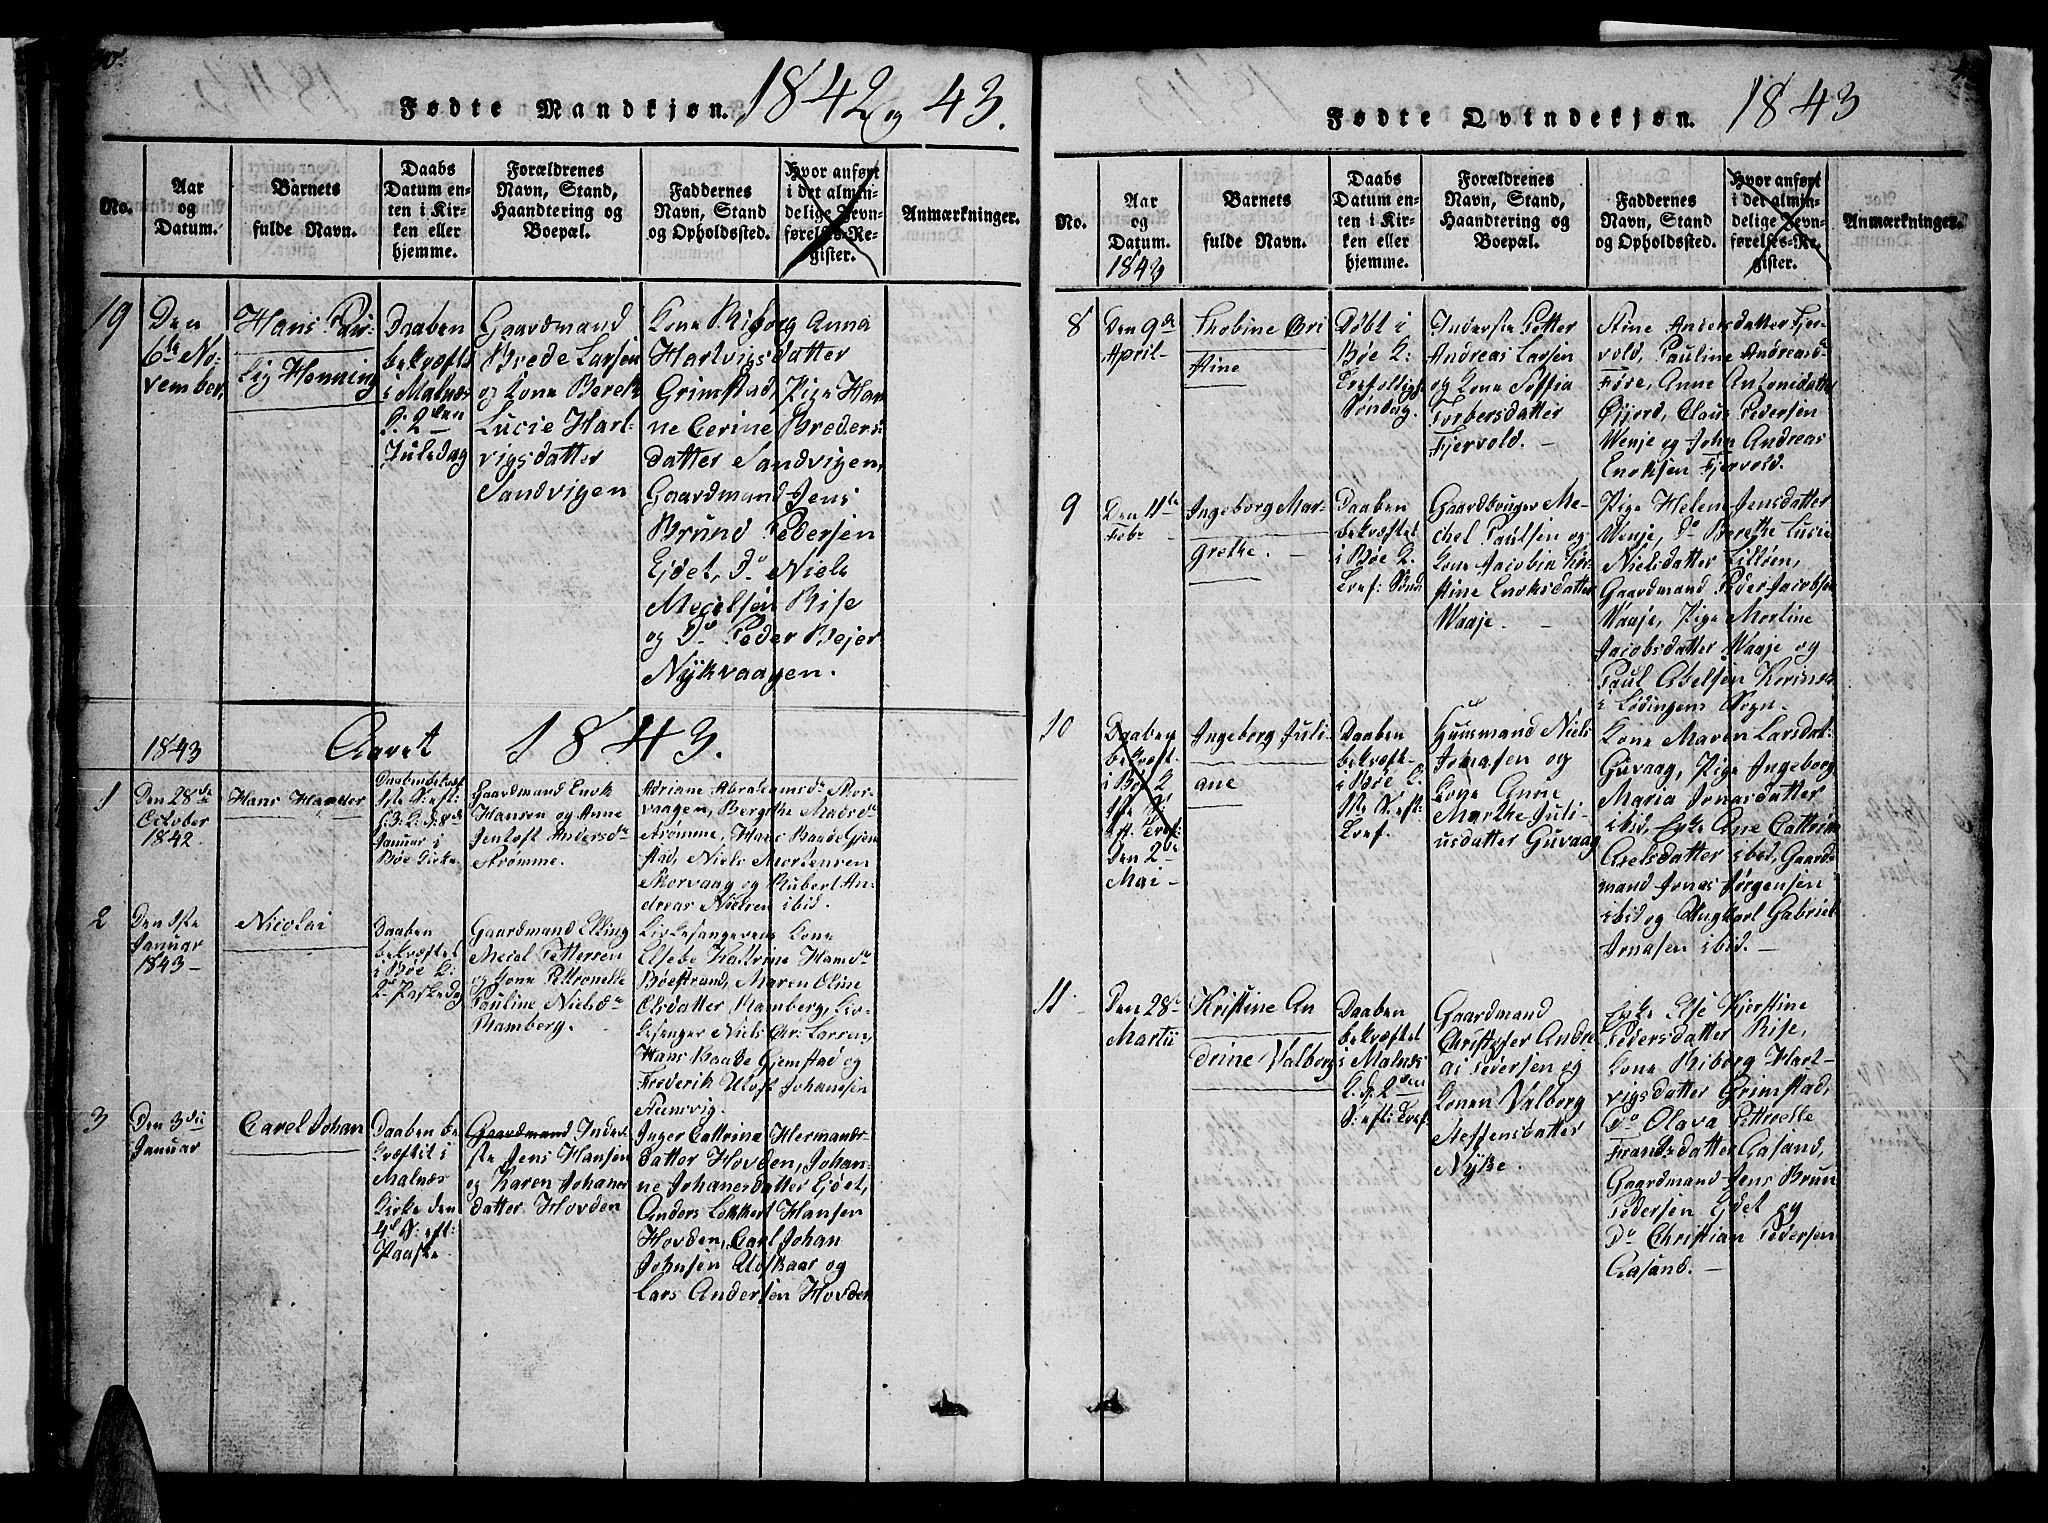 Fødte Mandkjøn. 1842 og 43.
No.
Aar
og
Datum.
Barnets
fulde Navn.
Daabs
Datum en-
ten i Kir-
ken eller
hjemme.
Forældrenes
Navn, Stand,
Haandtering og
Boepæl.
Faddernes
Navn, Stand
og Opholdssted.
Hvor anført
i det almin-
delige Jevn-
førelses-Re-
gister.
Anmærkninger.
19
Den
6te No-
vember,
Hans
lig Henning
Daaben
bekræftet
i Malnæs
K: 2den
Juledag
Gaardmand
Brede Larsen
og Kone Bereth
Lucie Hart-
vigsdatter
Sandvigen
Kone Riborg Anna
Hartvigsdatter
Grimstad, Pige Han
ne Cerine Breders-
datter Sandvigen,
Gaardmand Jens
Brund Pedersen
Ejdet, Do Niels
Mecelsen Rise
og Do Peder Bejer
Nykvaagen.
1843
Aaret 1843.
1
Den 28de
October
1842.
Hans
Januar i
Bøe Kirke
Gaardmand Enok
Hansen og Anne
Jentoft Andersdr
Strømme.
Adriane Abrahamsdr Skor-
vaagen, Bergthe Madsdr
Strømme, Hans Baade Gjem
stad, Niels Mortensen
Skorvaag og Rubert An-
dreas Nielsen ibid.
2
Den 1ste
Januar
1843 -
Nicolai
Daaben
bekræftet
i Bøe K:
2d Paaskedag
Gaardmand Elling
Mecal Pettersen
og Kone Petronelle
Pauline Nielsdr
Ramberg.
Kirkesangerens Kone
Elsebe Kattrine Hansdr
Bøestrand, Maren Oline
Olsdatter Ramberg, Kir-
kesanger Niels Chr. Larsen,
Hans Baade Gjemstad og
Frederik Ulost Johansen
3
Den 3die
Januar
Carel Johan
Daaben be
kræftet i
Malnæs
Kirke den
4de S: eft:
Paaske
Gaardmand Inder-
ste Jens Hansen
og Karen Johans
datter Hovden
Inger Cattrina Hermans-
datter Hovden, Johan-
ne Johanesdatter Ejdet,
Anders Lokkert Hansen
Hovden, Carl Johan
Johnsen Utskaar og
Lars Andersen Hovden
Fødte Qvindekjøn. 1843
No.
Aar
og
Datum.
1843
Barnets
fulde Navn.
Daabs
Datum en-
ten i Kir-
ken eller
hjemme.
Forældrenes
Navn, Stand,
Haandtering og
Boepæl.
Faddernes
Navn, Stand
og Opholdssted.
Hvor anført
i det almin-
delige Jevn-
førelses-Re-
gister.
Anmærkninger.
8
Den 9de
April-
Thobine Cri
stine
Døbt i
Bøe K:
Trefoldigh
Søndag.
Inderste Petter
Andreas Larsen
og Kone Soffia
Torbersdatter
Fjervold. -
Stine Andersdatter Fjer-
vold, Pauline Andreasdr
Føre, Anne Antonisdatter
Øjord, Claus Pedersen
Wenje og John Andreas
Enoksen Fjervold.
9
Den 11te
Febr
Ingeborg Mar-
grethe. -
Daaben
bekræftet
i Bøe K.
Tref: Sønd.
Gaardbruger Me-
chel Paulsen og
Kone Jacobia Kir-
stine Enoksdatter
Waaje. -
Pige Helene Jensdatter
Wenje, Do Berethe Lucie
Nielsdatter Lilløen,
Gaardmand Peder Jacobsen
Waaje, Pige Mortine
Jacobsdatter Waaje og
Paul Abelsen
i Lødingens Sogn.
10
Daaben
bekræft.
i Bøe K
1ste S:
eft. Tref:
Den 2de
Mai -
Ingeborg Juli-
ane
Daaben
bekræft-
i Bøe K.
1ste S: eft:
Tref.
Huusmand Niels
Jonasen og
Kone Anne
Marthe Juli-
usdatter Guvaag
Kone Maren Larsdat-
Guvaag, Pige Ingeborg
Maria Jonasdatter
ibid, Enke Ane Cattrine
Axelsdatter ibid, Gaard-
mand Jonas Jørgensen
ibid og Ungkarl Gabriel
Jonasen ibid. -
11
Den 28de
Martii
Kristine An
drine Valborg
Daaben
bekræftet
i Malnæs
K. d. 2den
S: eft: Tref.
Gaardmand
Christofer Andre
as Pedersen og
Konen Valborg
Steffensdatter
Nyke.
Enke Else Kjerstine
Pedersdatter Rise,
Kone Riborg Hart-
vigsdatter Grimstad,
Do Olava Pettrelle
Frandsdatter Aasand,
Gaardmand Jens Brun
Pedersen Ejdet og
Do Christian Pedersen
Aasand. -